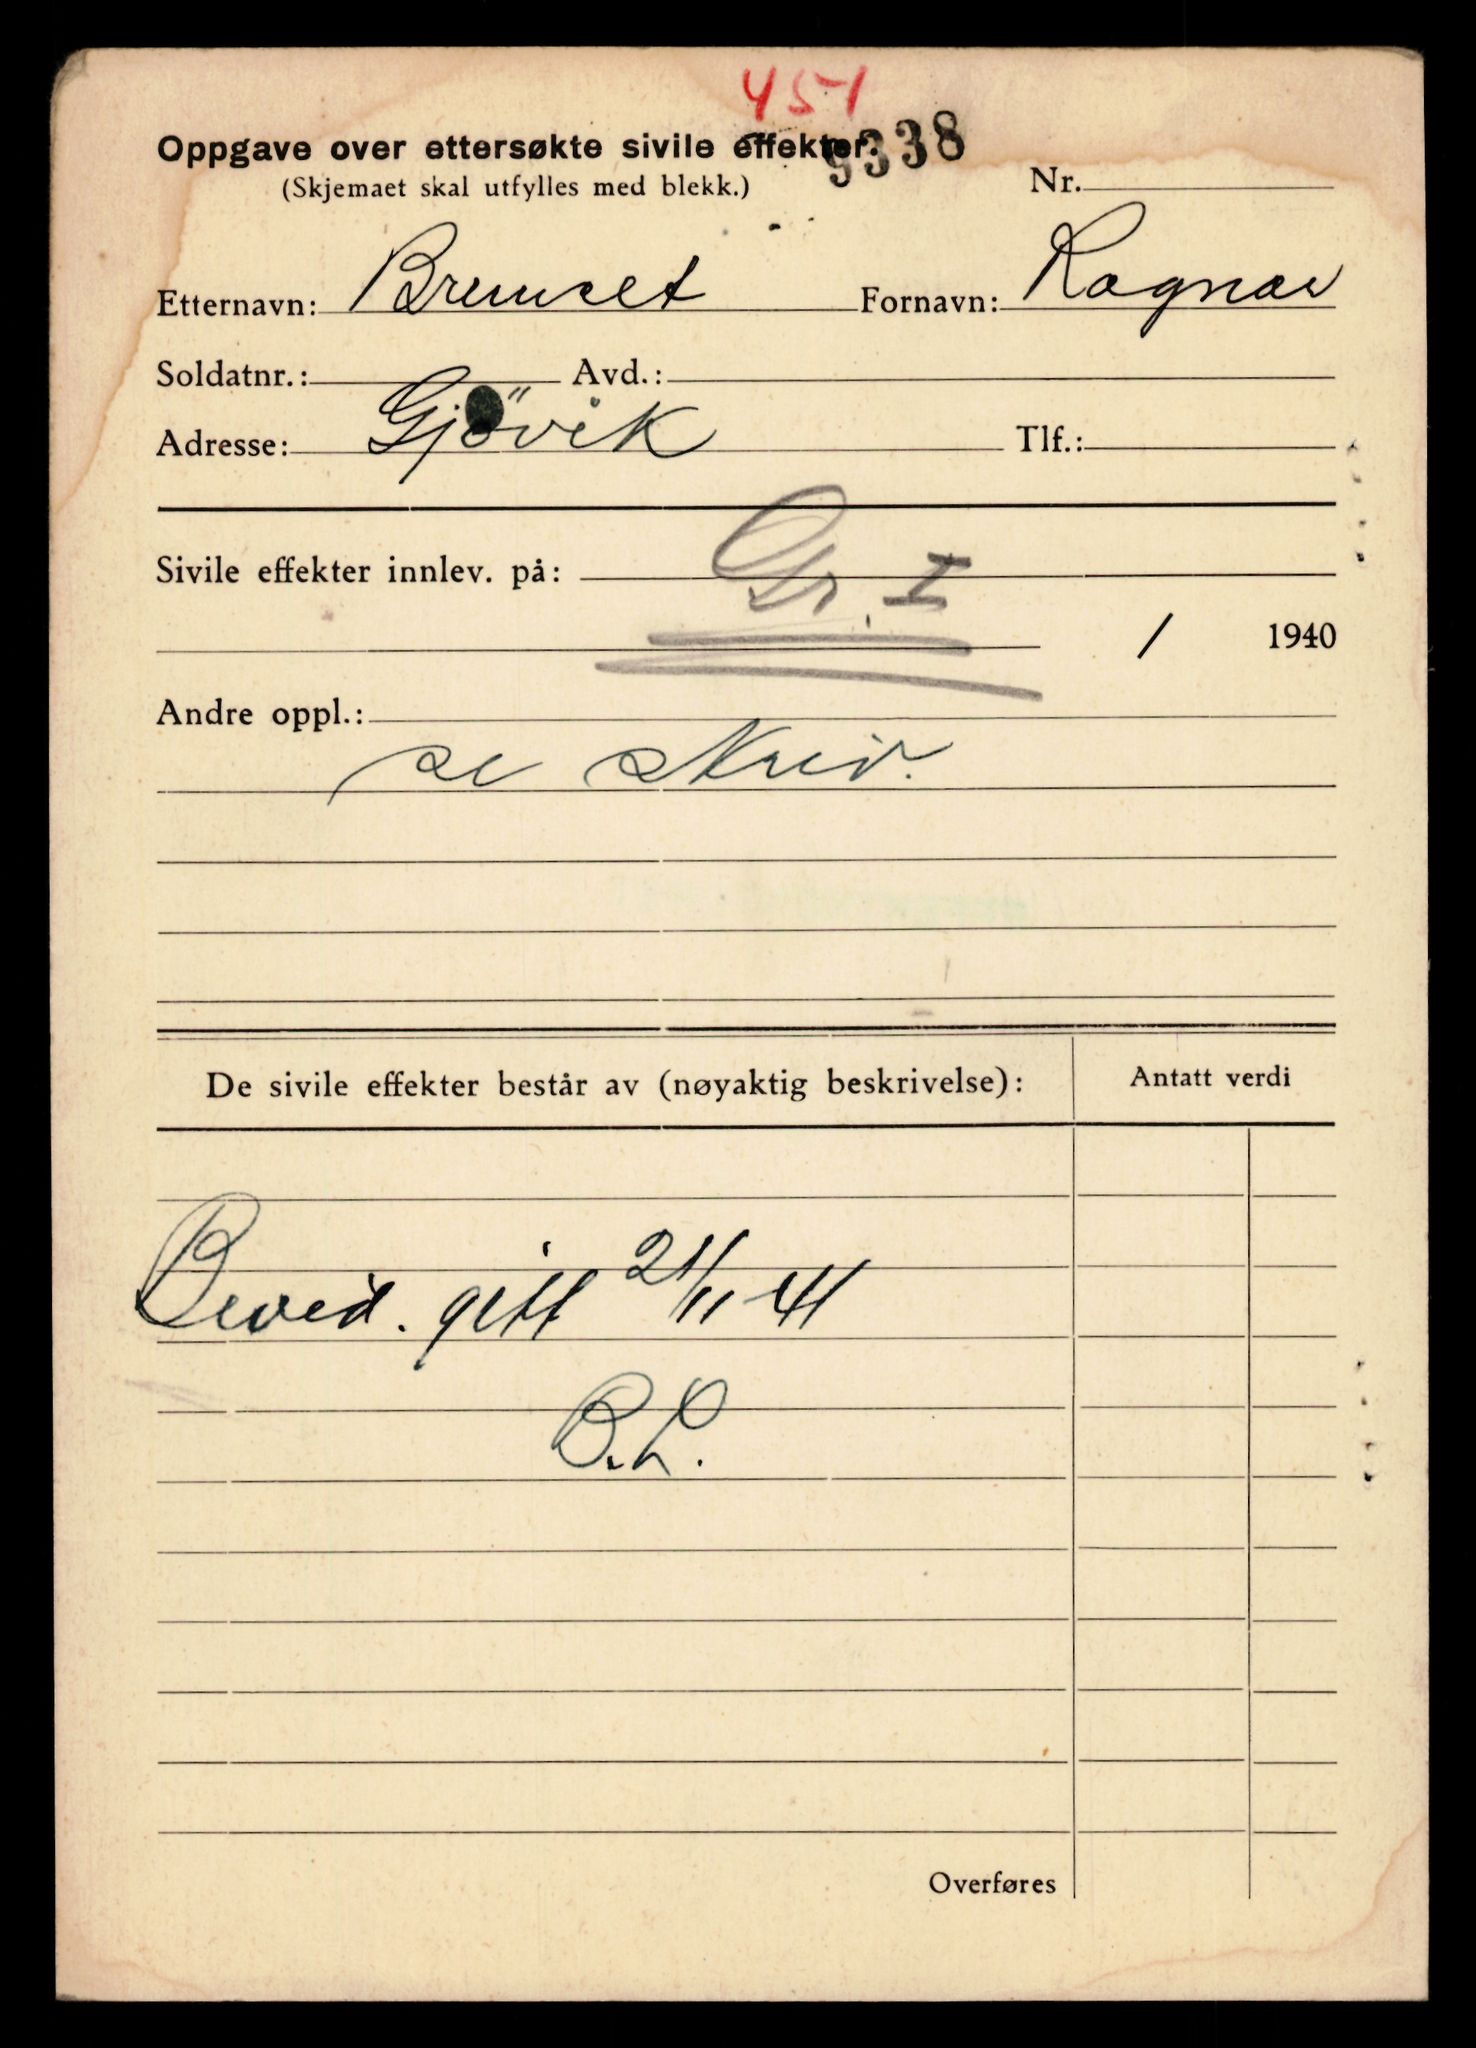 451
Oppgave over ettersøkte sivile effekter.
9338
(Skjemaet skal utfylles med blekk.)
Nr.
Etternavn: Bremset Fornavn: Ragnar
Soldatnr.: Avd.:
Adresse: Gjövik Tlf.:
Sivile effekter innlev. på: Gr. I
/ 1940
Andre oppl.:
se skriv.
De sivile effekter består av (nøyaktig beskrivelse): Antatt verdi
Bevid. gitt 21/11-41
B.L.
Overføres